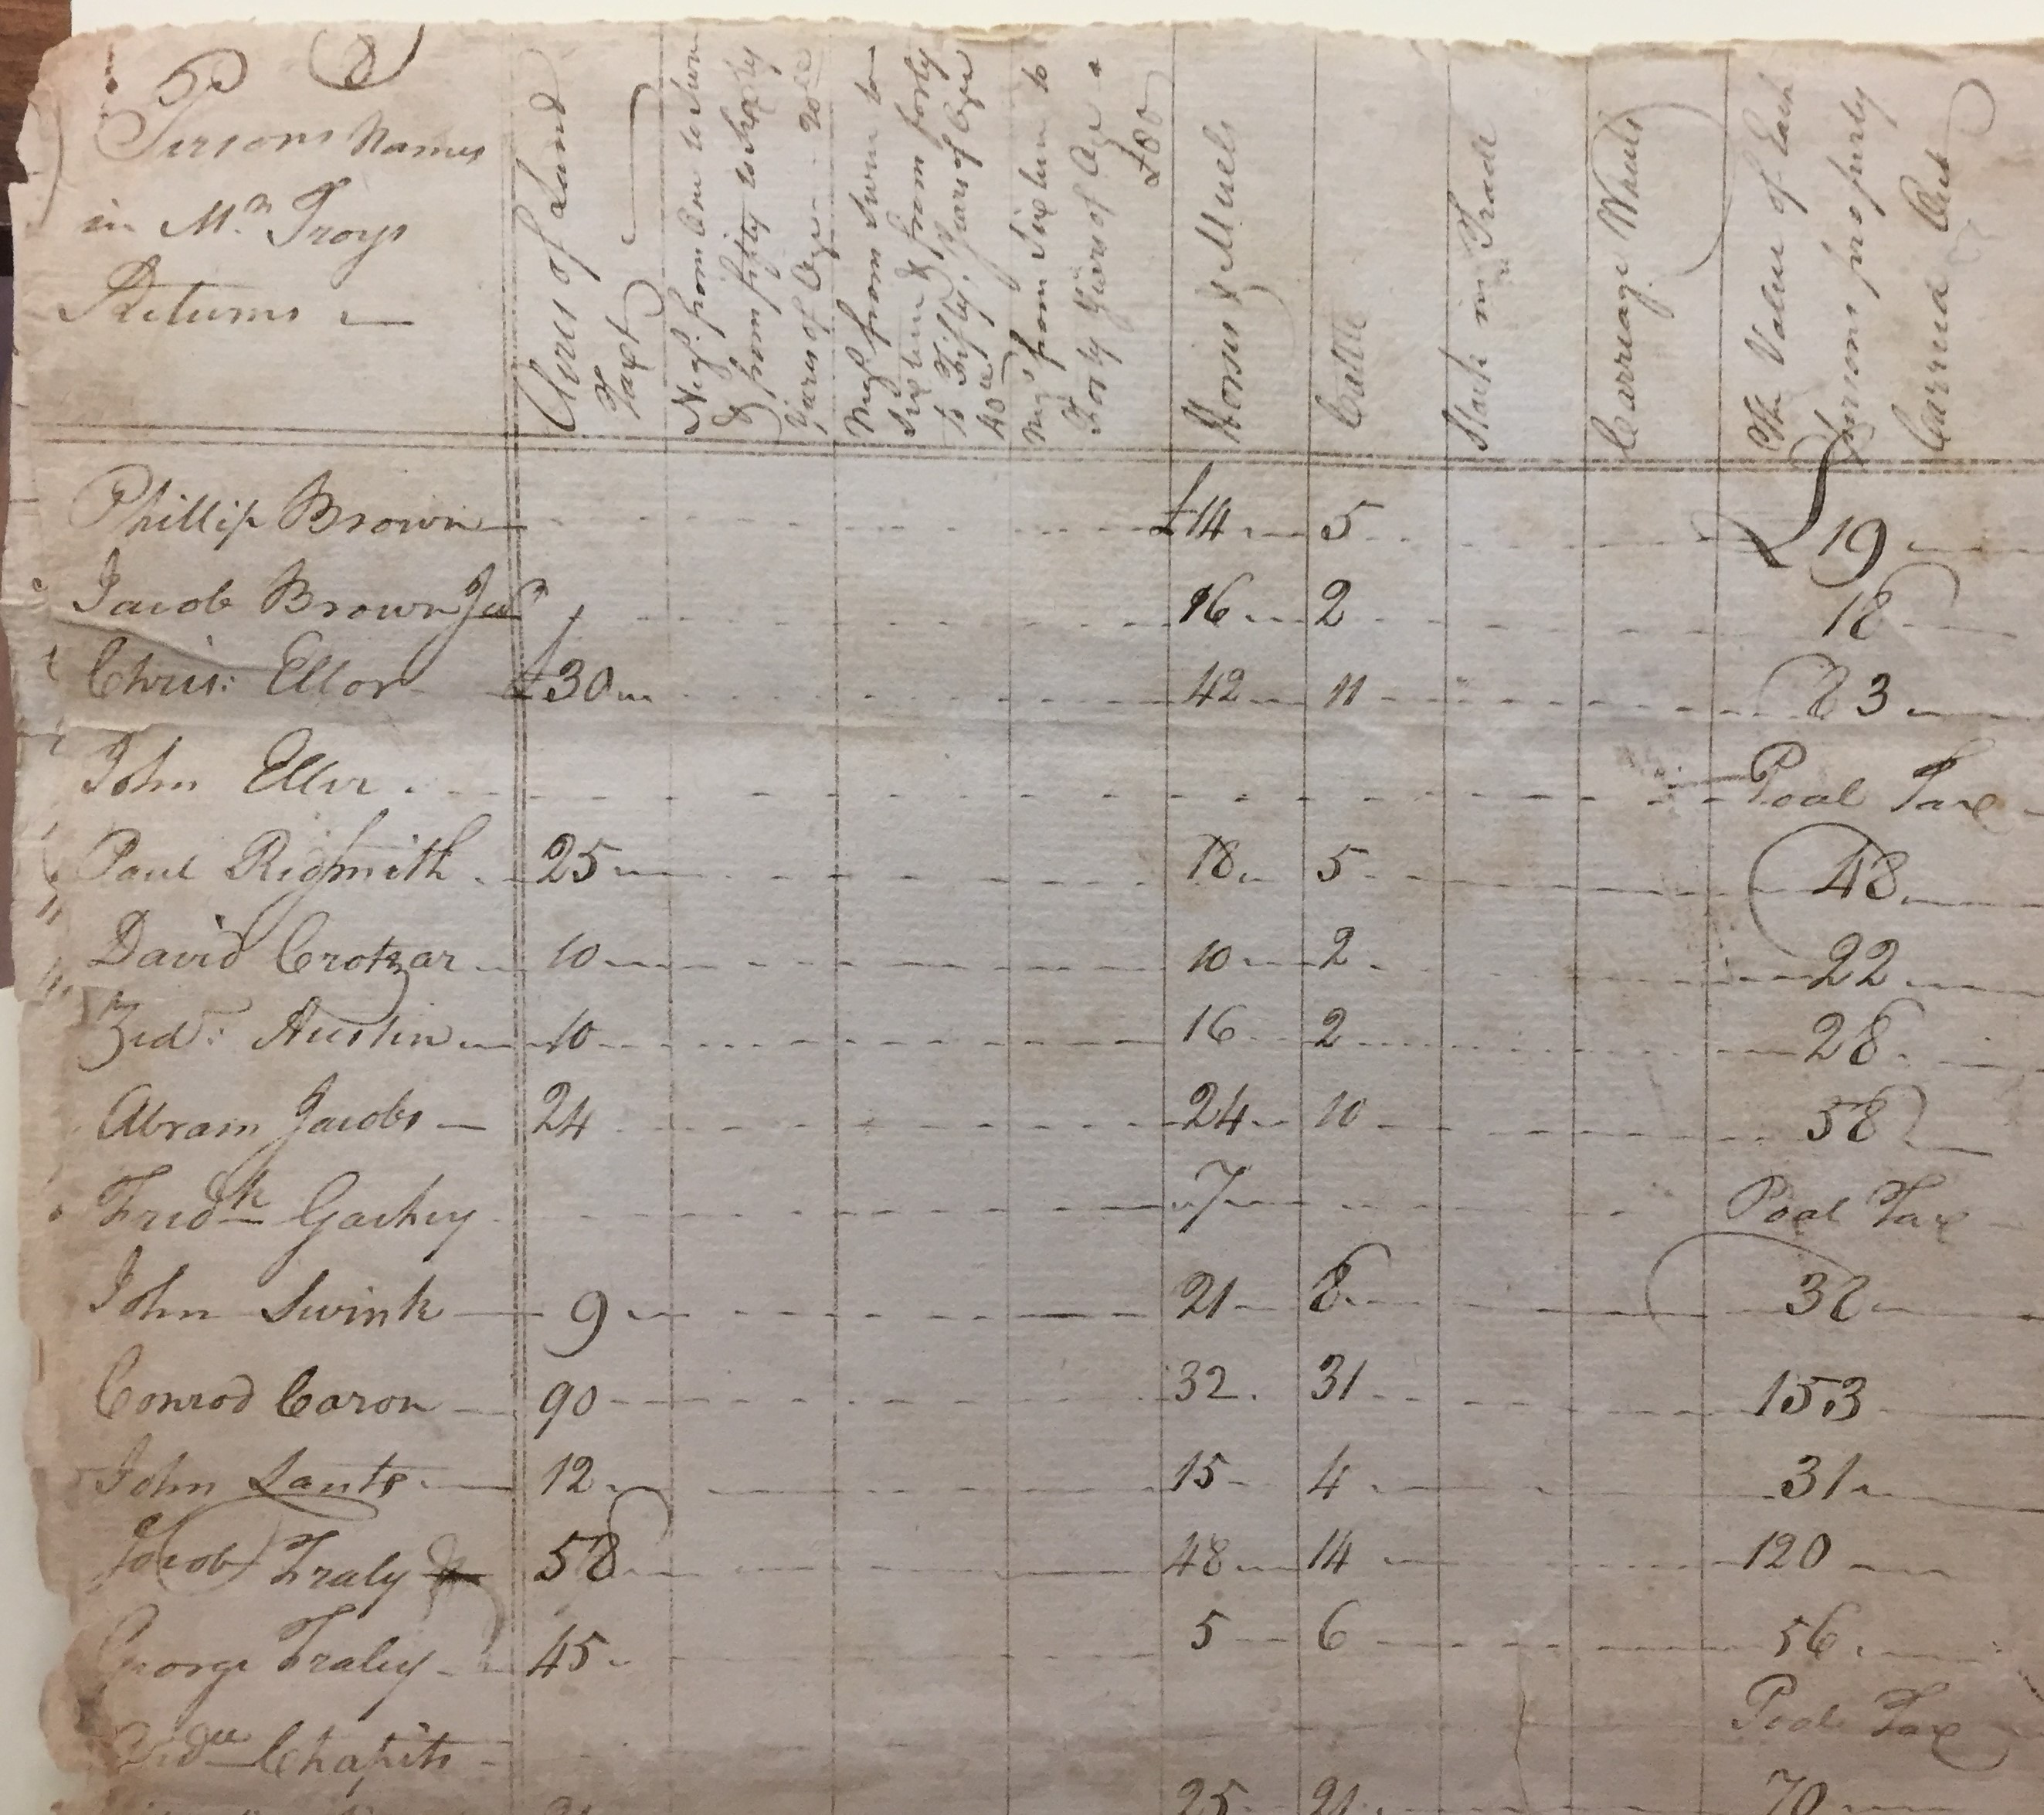 Persons Names
in Mr. Troys
Returns —
Acres of Land
Taxt
Neg: from One to Seven
& from fifty to Sixty
Years of Age
Neg: from Seven to
Sixteen & from forty
to Fifty Years of Age
40
Neg: from Sixteen to
Forty Years of Age a
£80
Horses & Muels
Cattle
Stock in Trade
Carriage Wheels
The Value of Each
persons property
Carried Out
Phillip Brown £14 5 £19
Jacob Brown Jur 16 2 18
Chris: Ellor £30 42 11 83
John Eller Poal Tax
Paul Rigsmith 25 18 5 48
David Crotzar 10 10 2 22
Fred: Austin 10 16 2 28
Abram Jacobs 24 24 10 58
Fredk 7 Poal Tax
John Swink 9 21 8 38
Conrod Caron 90 32 31 153
John Lants 12 15 4 31
Jacob Fraly 58 48 14 120
George Fraley 45 5 6 56
Chapits Poal Tax
25 21 70